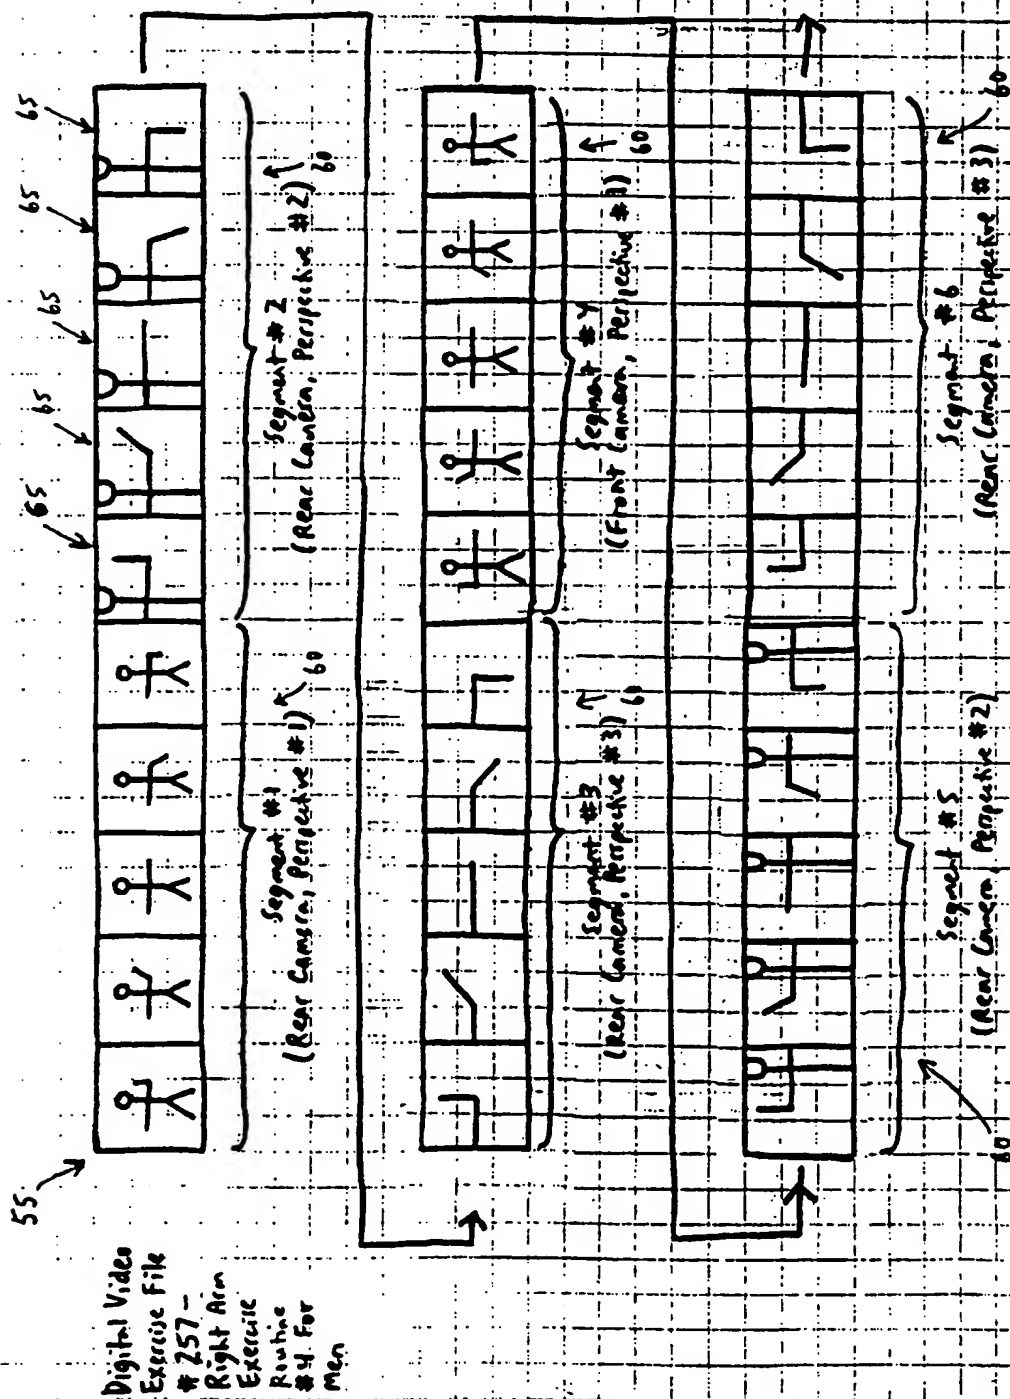 Digital Video
Exercise File
#257 -
Right Arm
Exercise
Routine
#4 For
Men
55
65
65
65
65
65
Segment #1
(Rear Camera, Perspective #1)
60
Segment #2
(Rear Camera, Perspective #2)
60
Segment #3
(Rear Camera, Perspective #3)
60
Segment #4
(Front Camera, Perspective #1)
60
Segment #5
(Rear Camera, Perspective #2)
60
Segment #6
(Rear Camera, Perspective #3)
60